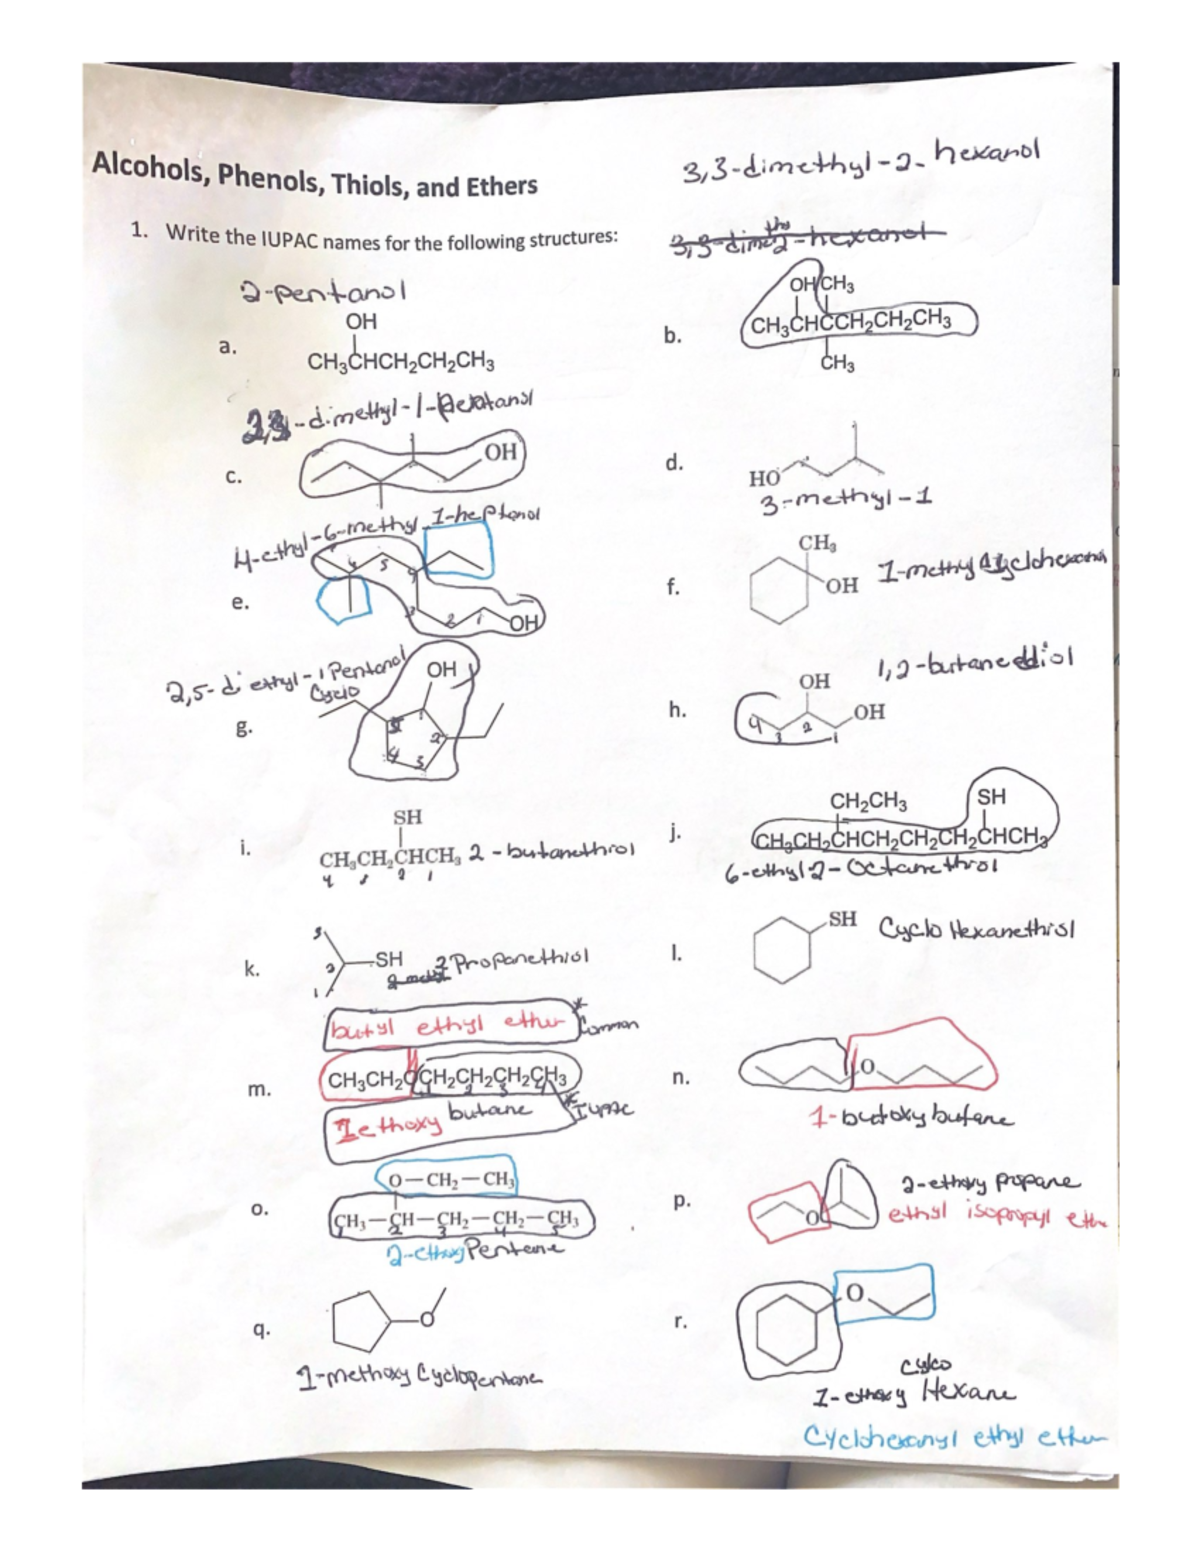 Alcohols, Phenols, Thiols, and Ethers
3,3-dimethyl-2-hexanol
1. Write the IUPAC names for the following structures:
2-pentanol
a.
OH
CH₃CHCH₂CH₂CH₃
b.
OH CH₃
CH₃CHCCH₂CH₂CH₃
CH₃
-dimethyl-1-
c.
OH
d.
HO
3-methyl-1
4-ethyl-6-methyl-1-heptanol
e.
6 5 4 3 2 1 OH
f.
CH₃
OH
1-methyl
2,5-diethyl-1 Pentanol
Cyclo
g.
OH
5 1 2 3 4
1,2-butanediol
h.
OH
OH
4 3 2 1
i.
SH
CH₃CH₂CHCH₃ 2-butanethiol
4 3 2 1
j.
CH₂CH₃ SH
CH₃CH₂CHCH₂CH₂CH₂CHCH₃
6-ethyl 2-Octanethiol
k.
3 2 1
SH 2 Propanethiol
l.
SH Cyclo Hexanethiol
butyl ethyl ether * Common
m.
CH₃CH₂OCH₂CH₂CH₂CH₃
1 ethoxy butane * Iupac
n.
O
1-butoxybutane
o.
O—CH₂—CH₃
CH₃—CH—CH₂—CH₂—CH₃
1 2 3 4 5
2-ethoxy Pentane
p.
O
2-ethoxy propane
ethyl isopropyl ethe
q.
O
1-methoxy Cyclopentane
r.
O
cylco
1-ethoxy Hexane
Cyclohexanyl ethyl ether